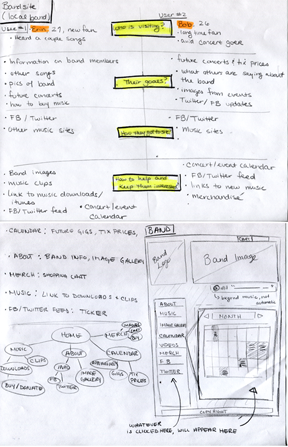 Bandsite
(local band)
User #1
Erin, 27, new fan
• Heard a couple songs
Who is visiting?
User #2
Bob, 26
• long time fan
• avid concert goer
• Information on band members
• other songs
• pics of band
• future concerts
• how to buy music
Their goals?
• future concerts & tix prices
• what others are saying about
the band
• images from events
• Twitter/FB updates
• FB / Twitter
• Other music sites
How they got to site
• FB / Twitter
Music sites
• Band images
• music clips
• Link to music downloads/
itunes
• FB/Twitter feed
• concert/event
calendar
How to help and
keep them interested?
• concert/event calendar
• FB/Twitter feed
• links to new music
• merchandise
• CALENDAR: FUTURE GIGS, TIX PRICES,
• ABOUT: BAND INFO, IMAGE GALLERY
• MERCH: SHOPPING CART
• MUSIC: LINK TO DOWNLOADS + CLIPS
• FB/TWITTER FEEDS: TICKER
HOME
MUSIC
CLIPS
DOWNLOADS
BUY/DONATE
ABOUT
INFO
FB
TWITTER
IMAGE
GALLERY
MERCH
CALENDAR
GIGS
TIX
PRICES
BAND
Band
Logo
Band Image
ABOUT
MUSIC
IMAGE GALLERY
CALENDAR
VIDEOS
MERCH
FB
TWITTER
MONTH
COPYRIGHT
WHATEVER
IS CLICKED HERE, WILL APPEAR HERE